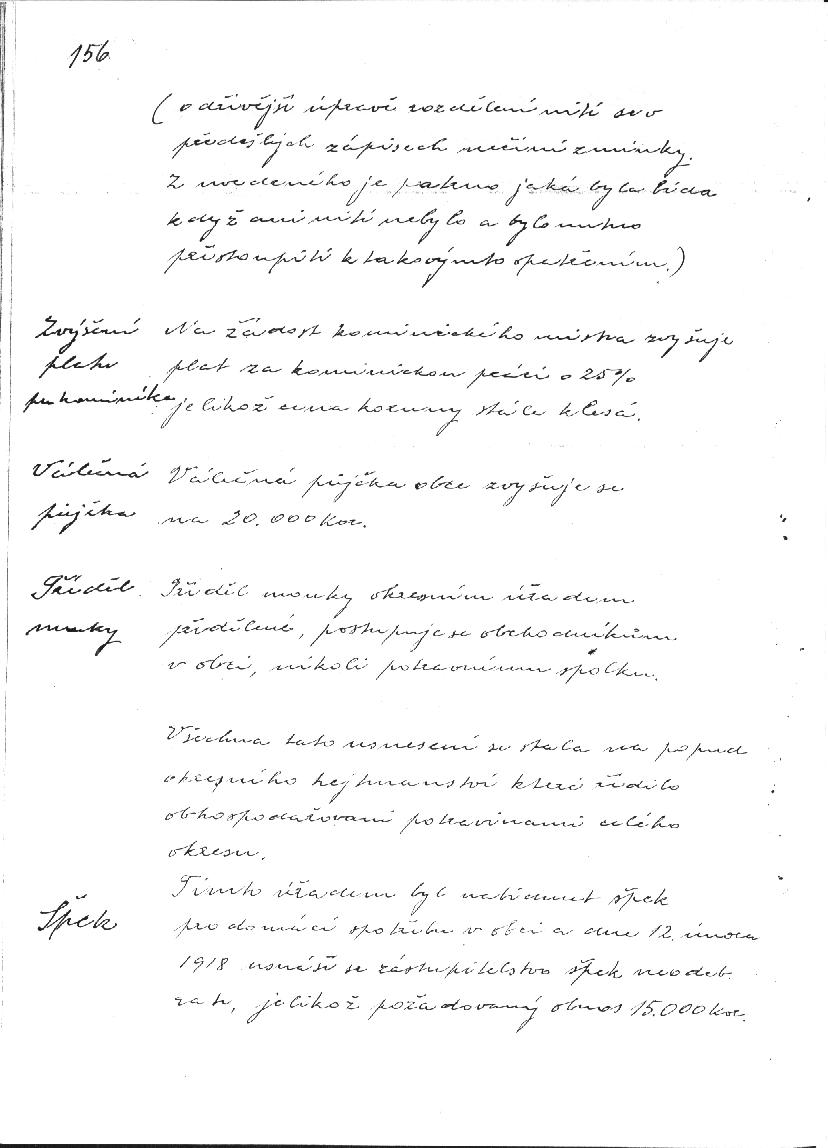 156
(o dřívější úpravě rozdělení nití se v
předešlých zápisech nečiní zmínky.
Z uvedeného je patrno jaká byla bída
když ani nití nebylo a bylo nutno
přistoupiti k takovýmto opatřením.)
Zvýšení
platu
kominíka
Na žádost kominického mistra zvyšuje
plat za kominickou práci o 25%
jelikož cena koruny stále klesá.
Válečná
půjčka
Válečná půjčka obce zvyšuje se
na 20.000 Kor.
Příděl
mouky
Příděl mouky okresním úřadem
přidělené, postupuje se obchodníkům
v obci, nikoli potravnímu spolku.
Všechna tato usnesení se stala na popud
okresního hejtmanství které řídilo
obhospodařování potravinami celého
okresu.
Špek
Tímto úřadem byl nabídnut špek
pro domácí spotřebu v obci a dne 12. února
1918 usnáší se zastupitelstvo špek neodeb
rati, jelikož požadovaný obnos 15.000 Kor.